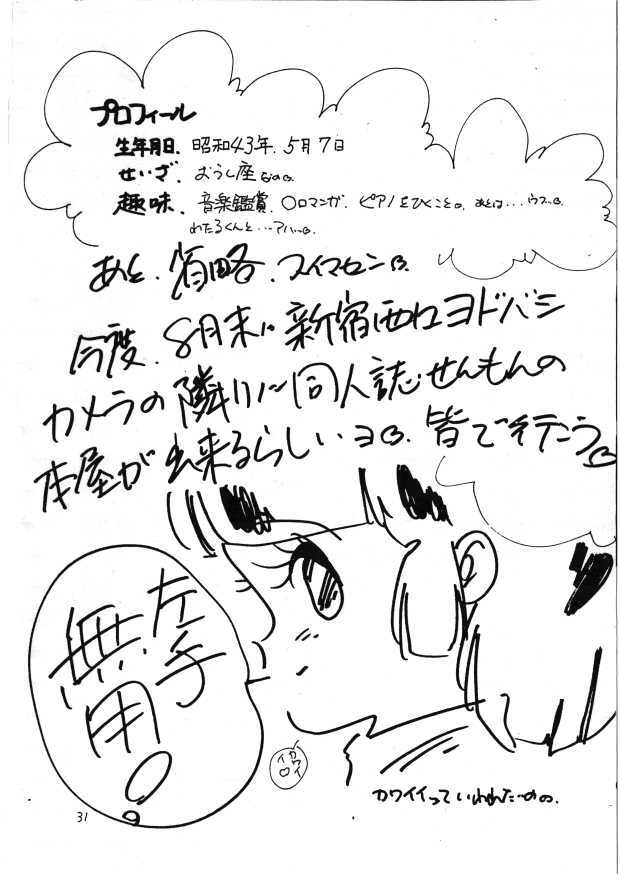 プロフィール
生年月日、昭和43年、5月7日
せいざ、おうし座なのね
趣味、音楽鑑賞、〇ロマンガ、ピアノをひくこと。あとは…ウフ。
わたるくんと…アハ
あと、省略、スイマセン
今度、8月末に新宿西口ヨドバシ
カメラの隣りに同人誌せんもんの
本屋が出来るらしいヨ。皆で行こう
左手
無用
カワイイ
カワイイっていわれた
31